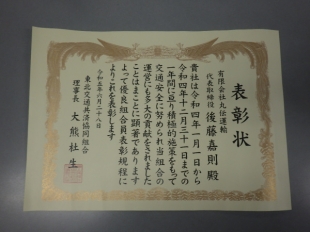 表彰状
有限会社丸伝運輸
代表取締役 後藤嘉則殿
貴社は令和四年一月一日から
令和四年十二月三十一日までの
一年間に亘り積極的施策をもって
交通安全に努められ当組合の
運営にも多大の貢献をされました
ことはまことに顕著であります
よって優良組合員表彰規程に
よりこれを表彰します
令和五年六月二十八日
東北交通共済協同組合
理事長 大熊社生